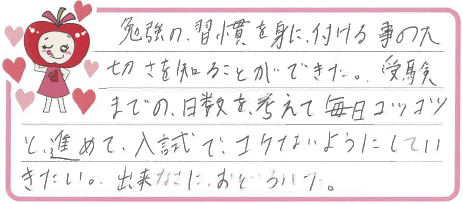 勉強の、習慣を身に、付ける事の大
切さを知ることができた。受験
までの、日数を、考えて毎日コツコツ
と、進めて、入試で、コケないようにしてい
きたい。出来